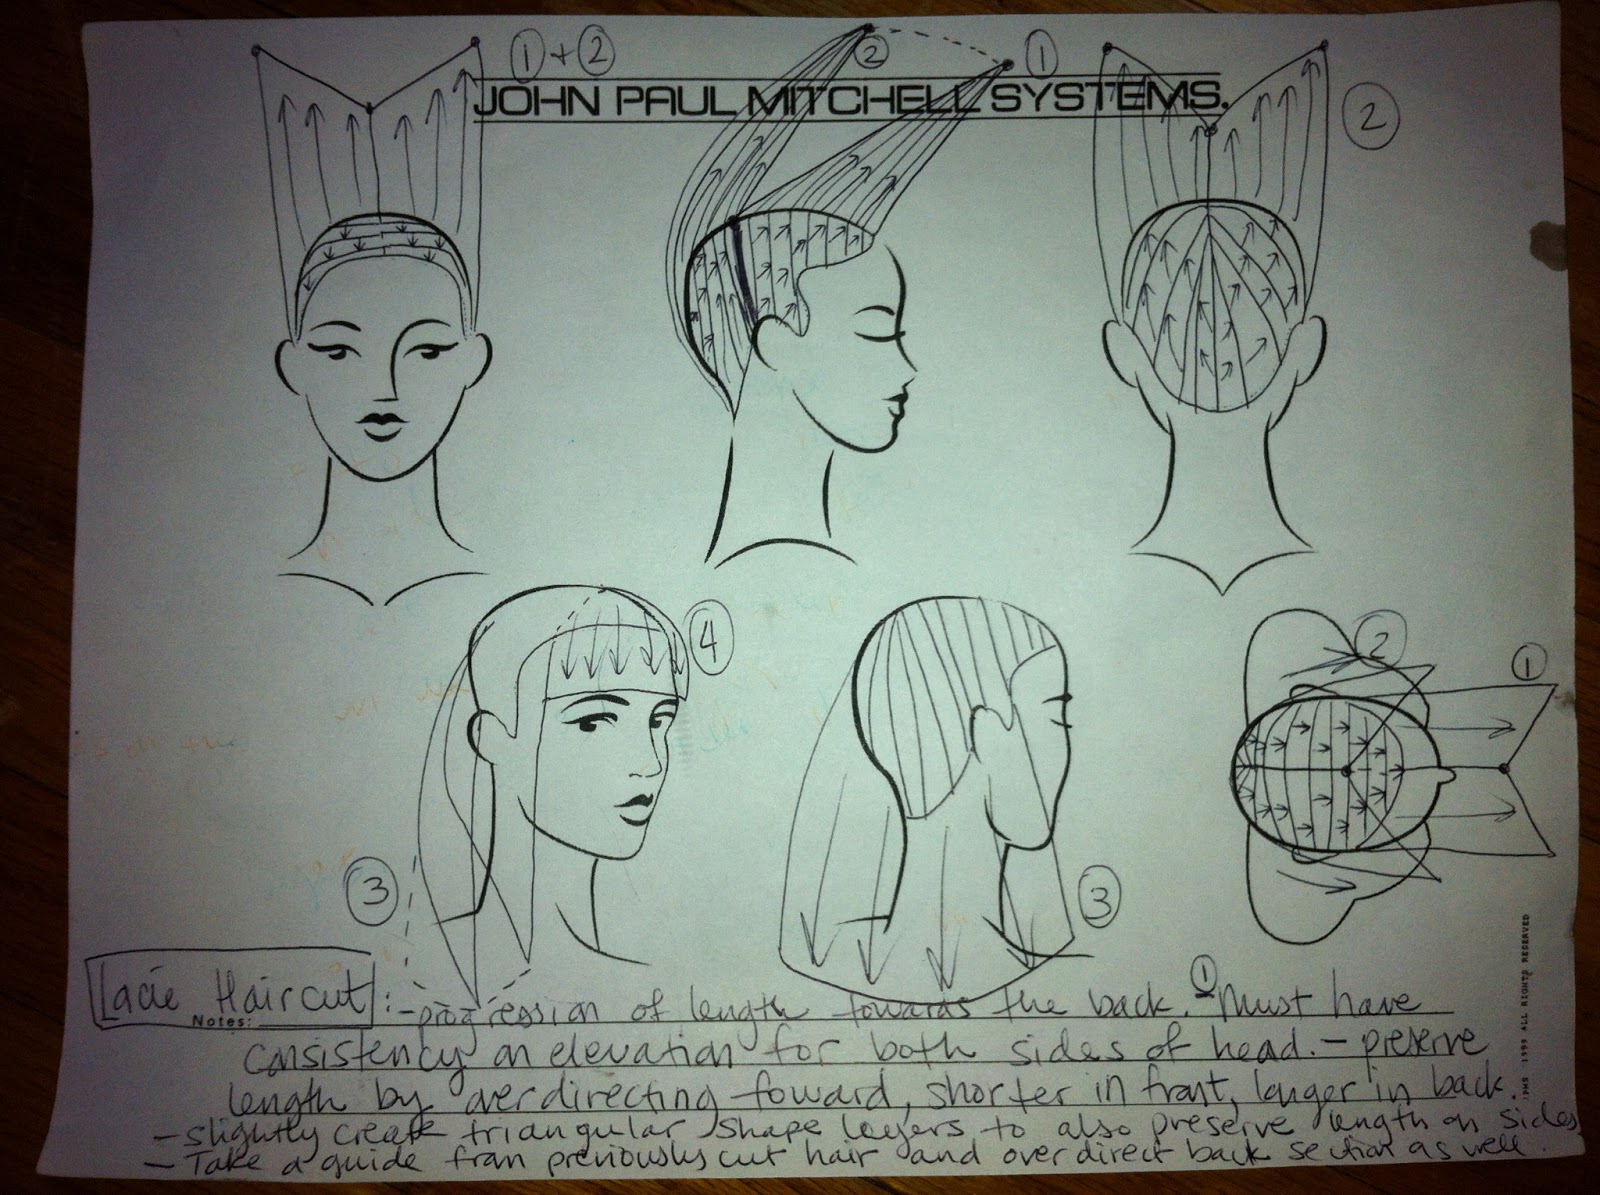 ① + ②
②
①
②
JOHN PAUL MITCHELL SYSTEMS.
④
②
①
③
③
Lacie Haircut : - progression of length towards the back. ① - Must have
Notes:
consistency on elevation for both sides of head. - preserve
length by overdirecting foward, shorter in front, longer in back.
- slightly create triangular shape layers to also preserve length on sides
- Take a guide from previously cut hair and overdirect back section as well.
JPMS 1999 ALL RIGHTS RESERVED